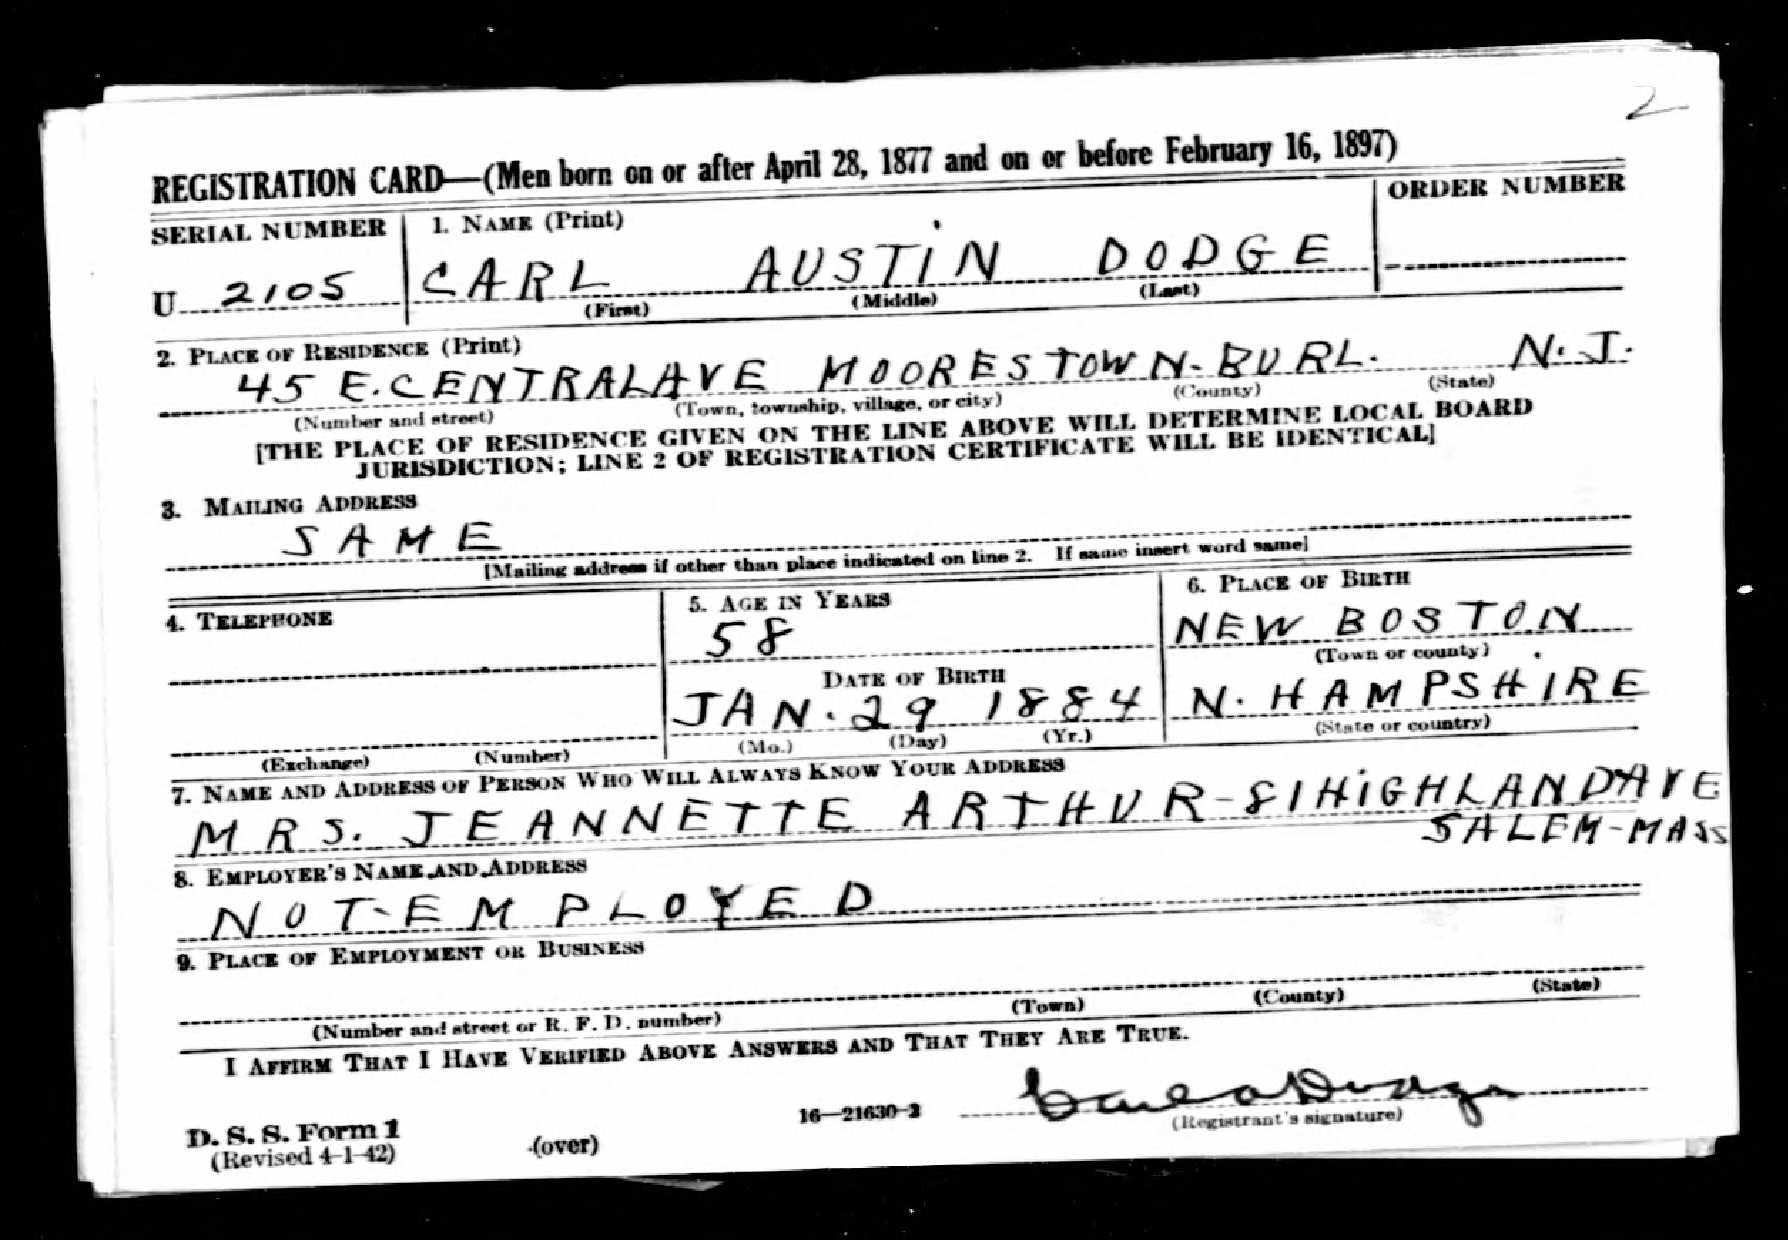 2
REGISTRATION CARD—(Men born on or after April 28, 1877 and on or before February 16, 1897)
SERIAL NUMBER 1. NAME (Print) ORDER NUMBER
U 2105 CARL AUSTIN DODGE
(First) (Middle) (Last)
2. PLACE OF RESIDENCE (Print)
45 E. CENTRAL AVE MOORESTOWN-BURL. N.J.
(Number and street) (Town, township, village, or city) (County) (State)
[THE PLACE OF RESIDENCE GIVEN ON THE LINE ABOVE WILL DETERMINE LOCAL BOARD
JURISDICTION; LINE 2 OF REGISTRATION CERTIFICATE WILL BE IDENTICAL]
3. MAILING ADDRESS
SAME
[Mailing address if other than place indicated on line 2. If same insert word same]
4. TELEPHONE 5. AGE IN YEARS 6. PLACE OF BIRTH
58 NEW BOSTON
(Town or county)
DATE OF BIRTH
JAN. 29 1884 N. HAMPSHIRE
(Exchange) (Number) (Mo.) (Day) (Yr.) (State or country)
7. NAME AND ADDRESS OF PERSON WHO WILL ALWAYS KNOW YOUR ADDRESS
MRS. JEANNETTE ARTHUR-81 HIGHLAND AVE
SALEM-MASS
8. EMPLOYER'S NAME AND ADDRESS
NOT-EMPLOYED
9. PLACE OF EMPLOYMENT OR BUSINESS
(Number and street or R. F. D. number) (Town) (County) (State)
I AFFIRM THAT I HAVE VERIFIED ABOVE ANSWERS AND THAT THEY ARE TRUE.
Carl A Dodge
D. S. S. Form 1 16—21630-2 (Registrant's signature)
(Revised 4-1-42) (over)